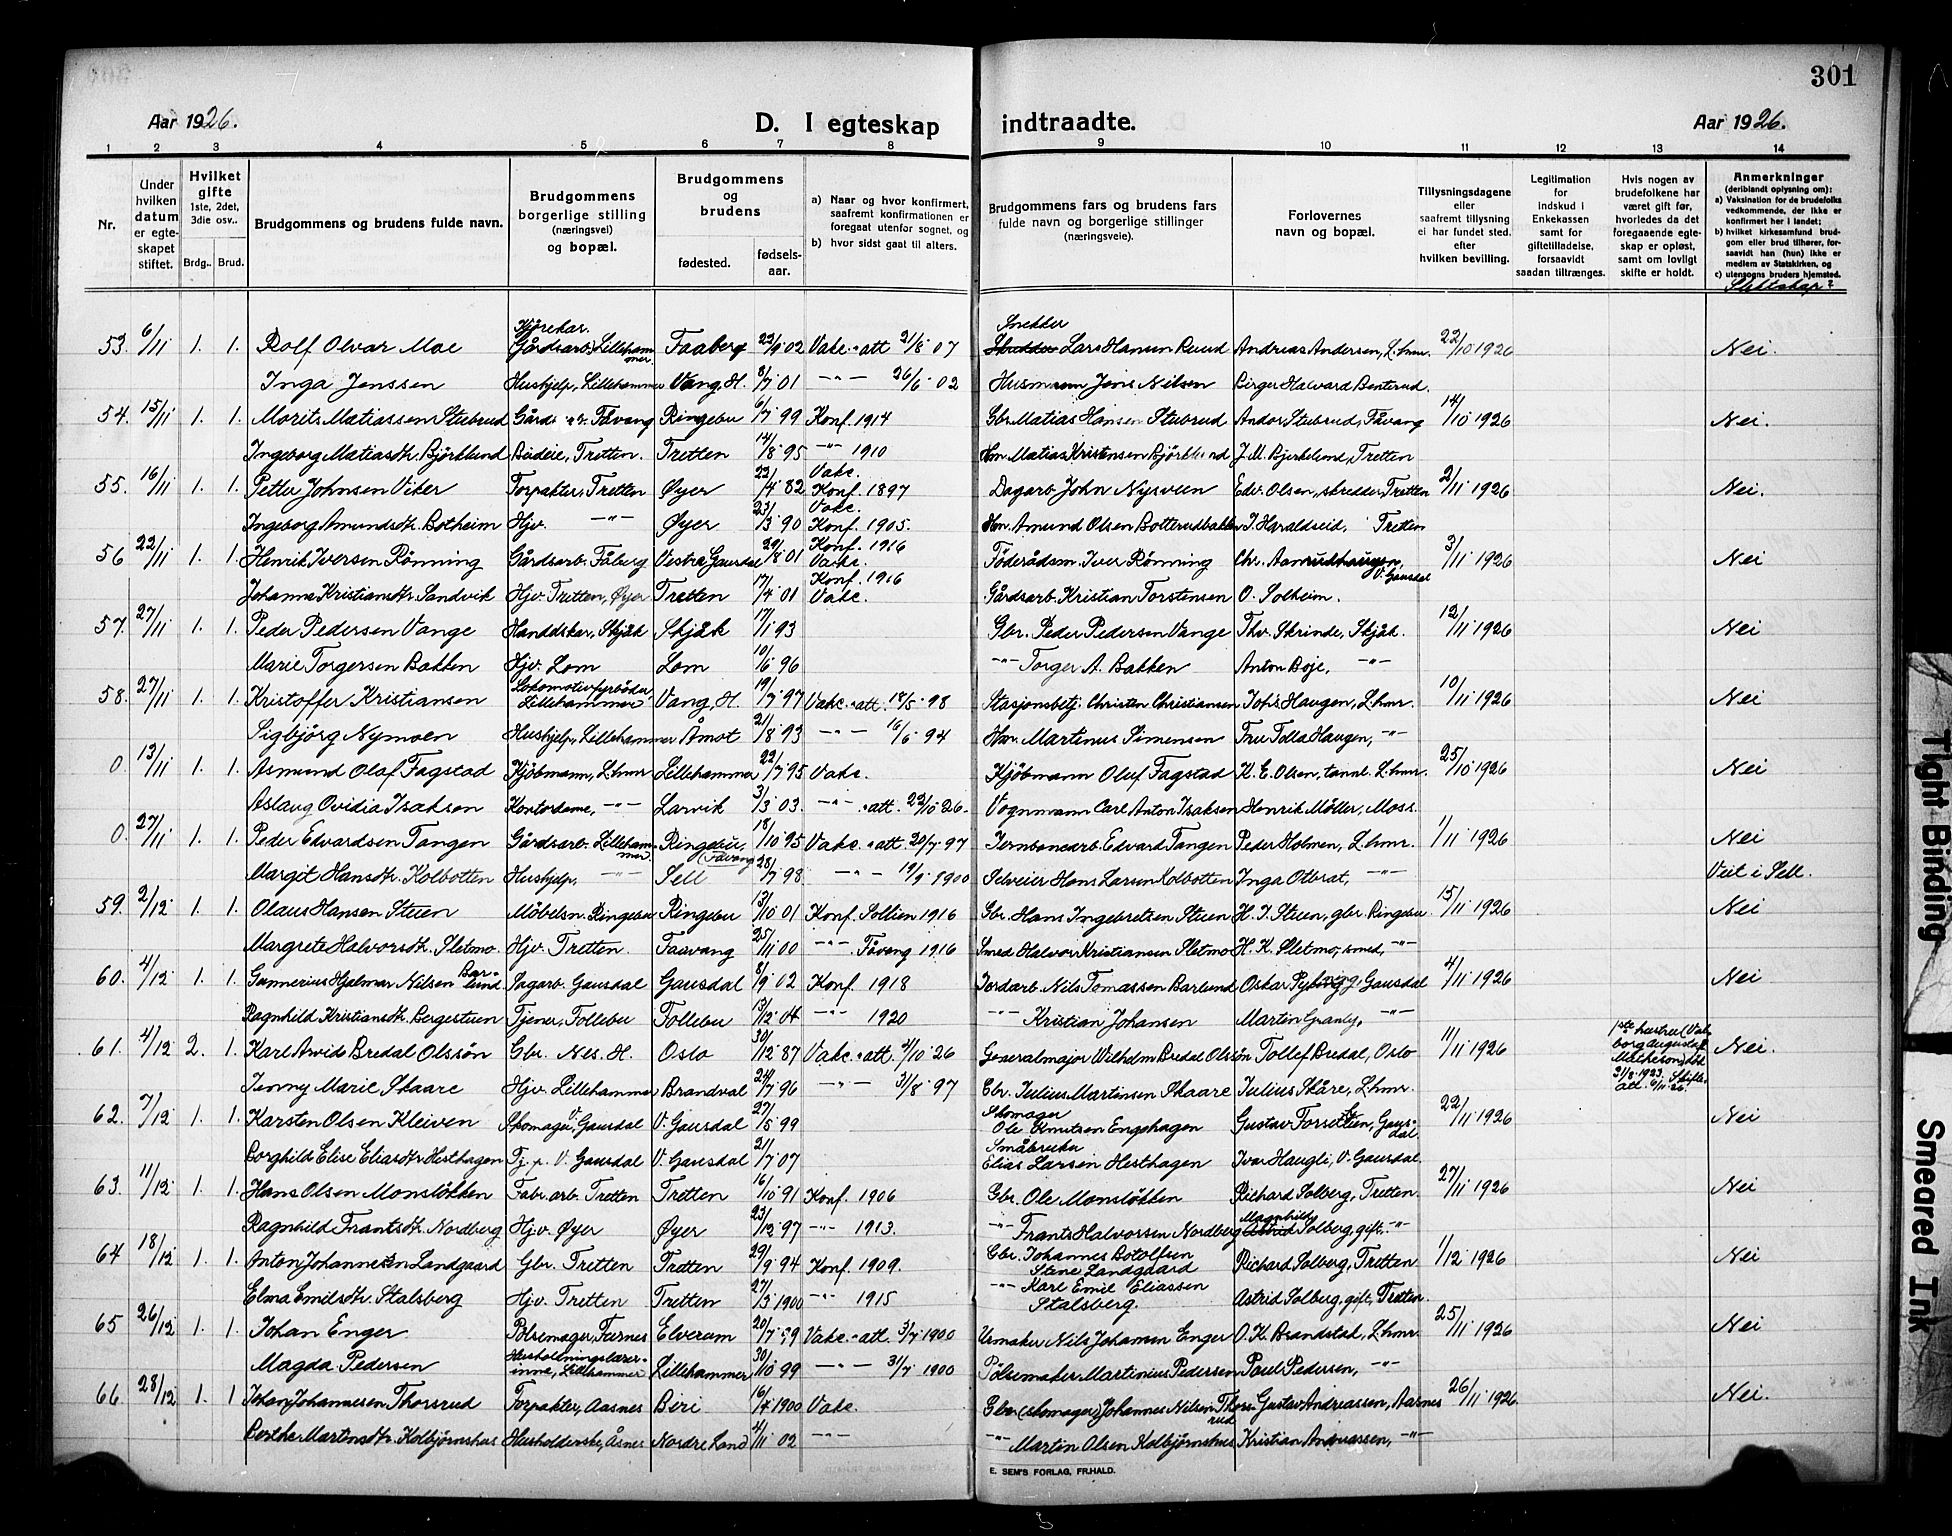 301
Aar 1926. D. I egteskap indtraadte. Aar 1926.
1 2 3 4 5 6 7 8 9 10 11 12 13 14
Nr.
Under hvilken datum er egteskapet stiftet.
Hvilket gifte 1ste, 2det, 3die osv..
Brdg.. Brud.
Brudgommens og brudens fulde navn.
Brudgommens borgerlige stilling (næringsvei) og bopæl.
Brudgommens og brudens
fødested. fødsels-aar.
a) Naar og hvor konfirmert, saafremt konfirmationen er foregaat utenfor sognet, og
b) hvor sidst gaat til alters.
Brudgommens fars og brudens fars fulde navn og borgerlige stillinger (næringsveie).
Forlovernes navn og bopæl.
Tillysningsdagene eller saafremt tillysning ei har fundet sted. efter hvilken bevilling.
Legitimation for indskud i Enkekassen samt for giftetilladelse, forsaavidt saadan tiltrænges.
Hvis nogen av brudefolkene har været gift før, hvorledes da det foregaaende egteskap er opløst, samt om lovligt skifte er holdt.
Anmerkninger (deriblandt oplysning om):
a) Vaksination for de brudefolks vedkommende, der ikke er konfirmert her i landet;
b) hvilket kirkesamfund brudgom eller brud tilhører, forsaavidt han (hun) ikke er medlem av Statskirken, og
c) utensogns bruders hjemsted.
Slektskap?
53. 6/11 1. 1. Rolf Olvar Moe Kjørekar. Gårdsarb. Lillehammer Faaberg 22/9 02 Vakc. att 21/8 07 Snekker Lars Hansen Ruud Andreas Andersen, L.hmr. 22/10 1926 Nei.
Inga Jenssen Hushjelp, Lillehammer Vang, H. 8/7 01 -"- 26/6 02 Husmann Jens Nilsen Birger Halvard Bentrud.
54. 15/11 1. 1. Morits Matiassen Stubrud Gårdsarb. Fåvang Ringebu 6/7 99 Konf. 1914 Gbr. Matias Hansen Stubrud Andor Stubrud, Fåvang 14/10 1926 Nei.
Ingeborg Matiasdtr. Bjørklund Budeie, Tretten. Tretten 14/8 95 -"- 1910 Hm. Matias Kristensen Bjørklund J. M. Bjerkelund, Tretten
55. 16/11 1. 1. Petter Johnsen Viker Forpakter, Tretten Øyer 22/4 82 Vakc. Konf. 1897 Dagarb. John Nysveen Edv. Olsen, skredder, Tretten 2/11 1926 Nei.
Ingeborg Amundsdtr. Botheim Hjv. -"- Øyer 23/3 90 Vakc. Konf. 1905. Hm. Amund Olsen Botterudbakken J. Haraldseid, Tretten
56 22/11 1. 1. Henrik Iversen Rønning Gårdsarb. Fåberg Vestre Gausdal 29/8 01 Konf. 1916 Vakc. Føderådsm. Iver Rønning Chr. Aamrudhaugen, V. Gausdal 3/11 1926 Nei
Johanne Kristiansdtr. Sandvik Hjv. Tretten, Øyer Tretten 17/4 01 Konf. 1916 Vakc. Gårdsarb. Kristian Torstensen O. Solheim.
57. 27/11 1. 1. Peder Pedersen Vange Handdskar, Skjåk Skjåk 17/1 93 Gbr. Peder Pedersen Vange Thv. Skrinde, Skjåk. 12/11 1926 Nei
Marie Torgersen Bakken Hjv. Lom Lom 10/6 96 -"- Torger A. Bakken Anton Bøje, -"-
58. 27/11 1. 1. Kristoffer Kristiansen Lokomotivfyrbøder, Lillehammer Vang, H. 19/7 97 Vakc. att. 18/5 98 Stasjonsbetj. Christen Christiansen Johs. Haugen, L.hmr. 10/11 1926 Nei
Sigbjørg Nymoen Hushjelp, Lillehammer Åmot 21/8 93 -"- 16/6 94 Hm. Martinus Simensen Fru Tolla Haugen, -"-
0. 13/11 1. 1. Asmund Olaf Fagstad Kjøbmann, L.hmr Lillehammer 22/7 95 Vakc. Kjøbmann Oluf Fagstad K. E. Olsen, tannl. L.hmr. 25/10 1926 Nei
Aslaug Ovidia Isaksen Kontordame, -"- Larvik 3/3 03. -"- att. 22/10 26. Vognmann Carl Anton Isaksen Henrik Møller, Moss.
0. 27/11 1. 1. Peder Edvardsen Tangen Gårdsarb. Lillehammer Ringebu, (Fåvang) 18/10 95 Vakc. att. 20/7 97 Jernbanearb. Edvard Tangen Peder Holmen, L.hmr. 1/11 1926 Nei
Margit Hansdtr. Kolbotten Hushjelp, -"- Sell 28/7 98 -"- 19/9 1900 Selveier Hans Larsen Kolbotten Inga Otbrat, -"- Viet i Sell.
59. 2/12 1. 1. Olaus Hansen Stuen Møbelsn. Ringebu Ringebu 13/10 01 Konf. Sollien 1916 Gbr. Hans Ingebretsen Stuen H. I. Stuen, gbr Ringebu 15/11 1926 Nei
Margrete Halvorsdtr. Sletmo. Hjv. Tretten Faavang 25/11 00 -"- Fåvang 1916 Smed Halvor Kristiansen Sletmo H. K. Sletmo, smed, -"-
60. 4/12 1. 1. Gunnerius Hjalmar Nilsen Barlund Sagarb. Gausdal Gausdal 8/9 02 Konf. 1918 Jordarb. Nils Tomassen Barlund Oskar Nyborg, Gausdal 4/11 1926 Nei
Ragnhild Kristiansdtr. Bergestuen Tjener, Follebu Follebu 13/12 04 -"- 1920 -"- Kristian Johansen Martin Granly, -"-
61. 4/12 2. 1 Karl Arvid Bredal Olssøn Gbr. Nes. H. Oslo 30/12 87 Vakc. att. 2/10 26 Generalmajor Wilhelm Bredal Olssøn Tollef Bredal, Oslo 11/11 1926 1ste hustru (Valborg Augusta f. Matheson) død 31/8 1923. Skifte att. 6/11 26. Nei.
Jenny Marie Skaare Hjv. Lillehammer Brandval 24/7 96 -"- 31/8 97 Gbr. Julius Martinsen Skaare Julius Skåre, L.hmr.
62. 7/12 1. 1 Karsten Olsen Kleiven Skomager, V. Gausdal V. Gausdal 27/5 99 Skomager Ole Knutsen Engehagen Gustav Forsetlien, Gausdal 22/11 1926 Nei
Borghild Elise Eliasdtr. Hesthagen Tj. p. V. Gausdal V. Gausdal 21/7 07 Småbruker Elias Larsen Hesthagen Ivar Haugli, V. Gausdal.
63. 11/12 1. 1. Hans Olsen Monsløkken Fabr. arb. Tretten Tretten 16/10 91 Konf. 1906 Gbr. Ole Monsløkken Richard Solberg, Tretten. 27/11 1926 Nei
Ragnhild Frantsdtr. Nordberg Hjv. Øyer Øyer 23/12 97 -"- 1913. -"- Frants Halvorsen Nordberg Magnhild Solberg, gift. -"-
64 18/12 1. 1. Anton Johannesen Landgaard Gbr. Tretten Tretten 29/9 94 Konf. 1909. Gbr. Johannes Botolfsen Stene Landgaard Richard Solberg, Tretten 1/12 1926 Nei
Elma Emilsdtr. Stalsberg Hjv. Tretten Tretten 27/3 1900 -"- 1915 -"- Karl Emil Eliassen Stalsberg. Astrid Solberg, gift, Tretten.
65 26/12 1. 1. Johan Enger Pølsemager, Furnes Elverum 20/7 99 Vakc. att. 3/7 1900 Urmaker Nils Johansen Enger O. K. Brandstad, L.hmr. 25/11 1926 Nei
Magda Pedersen Husholdningslærerinne, Lillehammer Lillehammer 30/10 99 -"- 31/7 1900 Pølsemaker Martinius Pedersen Paul Pedersen, -"-
66 28/12 1. 1 Johan Johannessen Thorsrud Forpakter, Aasnes Biri 16/4 1900 Vakc. Gbr. (skomager) Johannes Nilsen Thorsrud Gustav Andreassen, Aasnes 26/11 1926. Nei.
Berthe Martinsdtr. Kolbjørnshus Husholderske, Åsnes Nordre Land 4/11 02 -"- -"- Martin Olsen Kolbjørnshus Kristian Andreassen, -"-
E. SEM'S FORLAG, FR.HALD.
Tight Binding
Smeared Ink